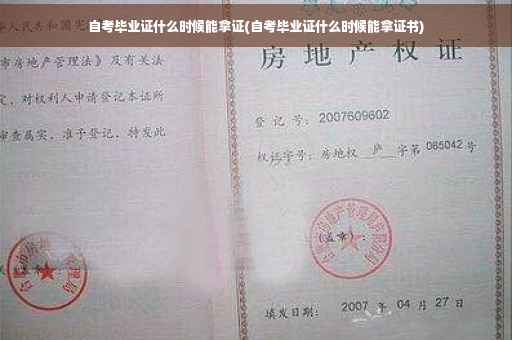 自考毕业证什么时候能拿证(自考毕业证什么时候能拿证书)
华人民共和国宪
市房地产管理法》及有关法
定，对权利人申请登记本证所
审查属实，准予登记，特发此
房地产权证
登记号：2007609602
权证字号：房地权 庐 字第 065042 号
(盖章)：
填发日期： 2007 年 04 月 27 日